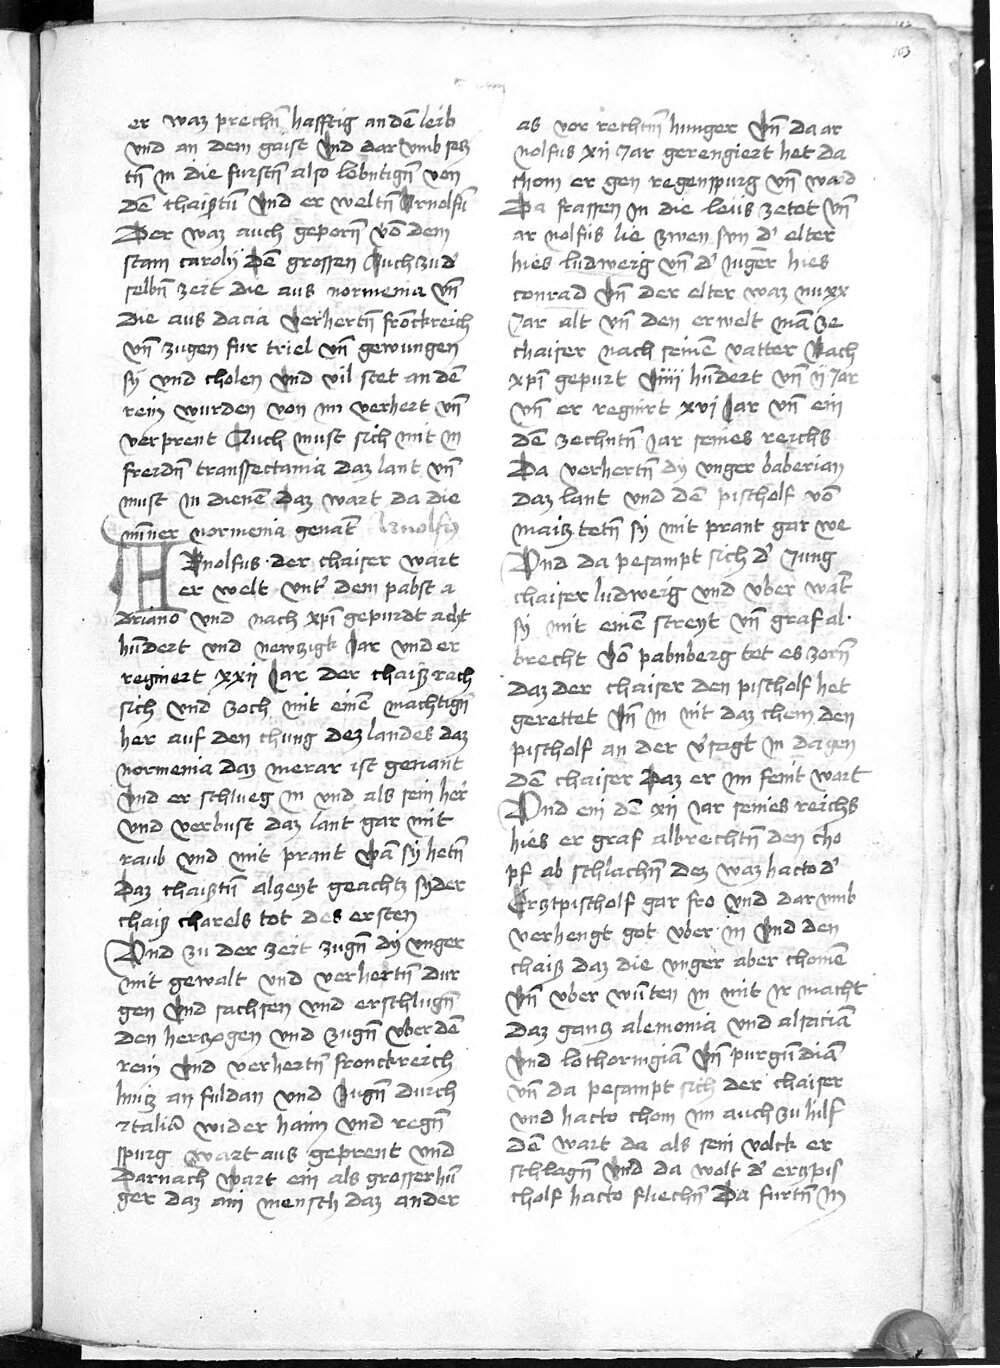 103
er waz prechn̄ hafftig an dē leib
vnd an dem gaist Vnd dar vmb secz
tn̄ in die furstn̄ also lebntign̄ von
dē chaisstū Vnd er weltn̄ Arnolfū
Der waz auch geporn̄ vō dem
stam carolij Dē grossen Auch zu dʾ
selbn̄ zeit die aus normenia Vn̄
die aus dacia Verhertn̄ frōckreich
Vn̄ zugen fur triel Vn̄ gewungen
sy vnd cholen Vnd vil stet an dē
rein wurden von im verhert Vn̄
verprent Auch must sich mit in
freidn̄ transsectania daz lant Vn̄
must in dienē Daz wart da die
mīner normenia genāt Arnolfus
ARnolfus der chaiser wart
er welt vntʾ dem pabst a
driano vnd nach xpī gepurdt acht
hūdert vnd newzigk Jar vnd er
reginert xxij Jar der chaiss rach
sich vnd zoch mit einē machtign̄
her auf den chung dez landes daz
normenia daz merar ist genant
Vnd er schlueg in vnd als sein her
vnd verbust daz lant gar mit
raub vnd mit prant Wā sy hetn̄
Daz chaisstū alzeyt geachtz syder
chaiss charels tot des ersten
Vnd zu der zeit zugn̄ dy vnger
mit gewalt vnd verhertn̄ dur
gen Vnd sachsen vnd erschlugn̄
den herzogen vnd zugn̄ vber dē
rein Vnd verhertn̄ fronckreich
hincz an fuldan vnd Zugn̄ durch
ytaliā wider haim vnd regn̄
spurg wart aus geprent vnd
Darnach Wart ein als grosser hū
ger daz ain mensch daz ander
as vor rechtm̄ hunger Vn̄ da ar
nolfus xij Jar gerengiert het da
chom er gen regenspurg vn̄ ward
Da frassen in die leiis ze tot Vn̄
ar nolfus lie zwen sun dʾ elter
hies ludweig vn̄ dʾ Jūger hies
conrad Vn̄ der elter waz nu xx
Jar alt vn̄ den erwelt mā ze
chaiser nach seinē vatter Nach
xpī gepurt Viiij hūdert vn̄ ij Jar
vn̄ er reginirt xvj Jar vn̄ ein
dē zechntn̄ Jar seines reichs
Da verhertn̄ dy vnger baberian
daz lant vnd dē pischolf vō
maisz tetn̄ sy mit prant gar we
Vnd da pesampt sich dʾ Jung
chaiser ludweig vnd vber wāt
sy mit einē streyt vn̄ graf al
brecht Vō pabnberg tet es zorn̄
daz der chaiser den pischolf het
gerettet Vn̄ in nit daz chem den
pischolf an der v̓sagt in da gen
dē chaiser Daz er im feint wart
Vnd ein dē xij Jar seines reichs
hies er graf albrechtn̄ den cho
pf ab schlachn̄ dez waz hacto dʾ
Erztpischolf gar fro vnd dar vmb
verhengt got vber in Vnd den
chaiss daz die vnger aber chomē
Vn̄ vber wūten in mit ir macht
Daz gancz alemonia vnd alsaciā
Vnd lothoringiā Vn̄ purgūdiā
vn̄ da pesampt sich der chaiser
vnd hacto chom im auch zu hilf
dē wart da als sein volck er
schlagn̄ Vnd da wolt dʾ erczpis
cholf hacto fliechn̄ Da furtn̄ in